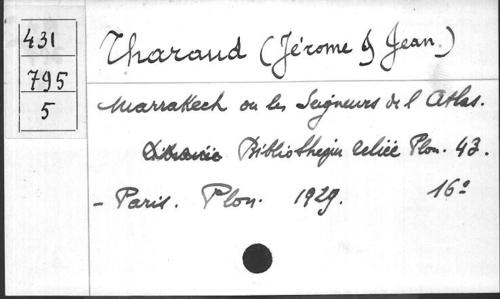 431
795
5
Tharaud (Jérome & Jean)
Marrakech ou les Seigneurs de l'Atlas.
Bibliothèque reliée Plon. 43.
- Paris. Plon. 1929. 16º